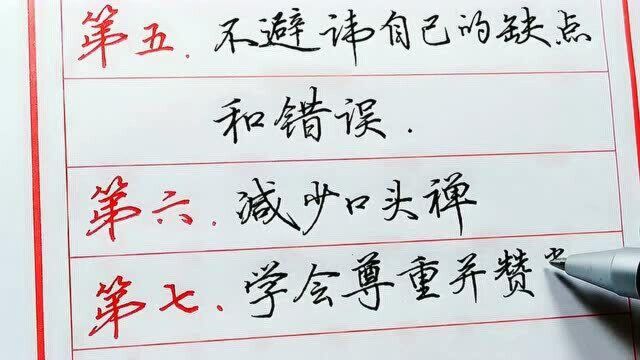 第五．不避讳自己的缺点
和错误．
第六．减少口头禅
第七．学会尊重并赞